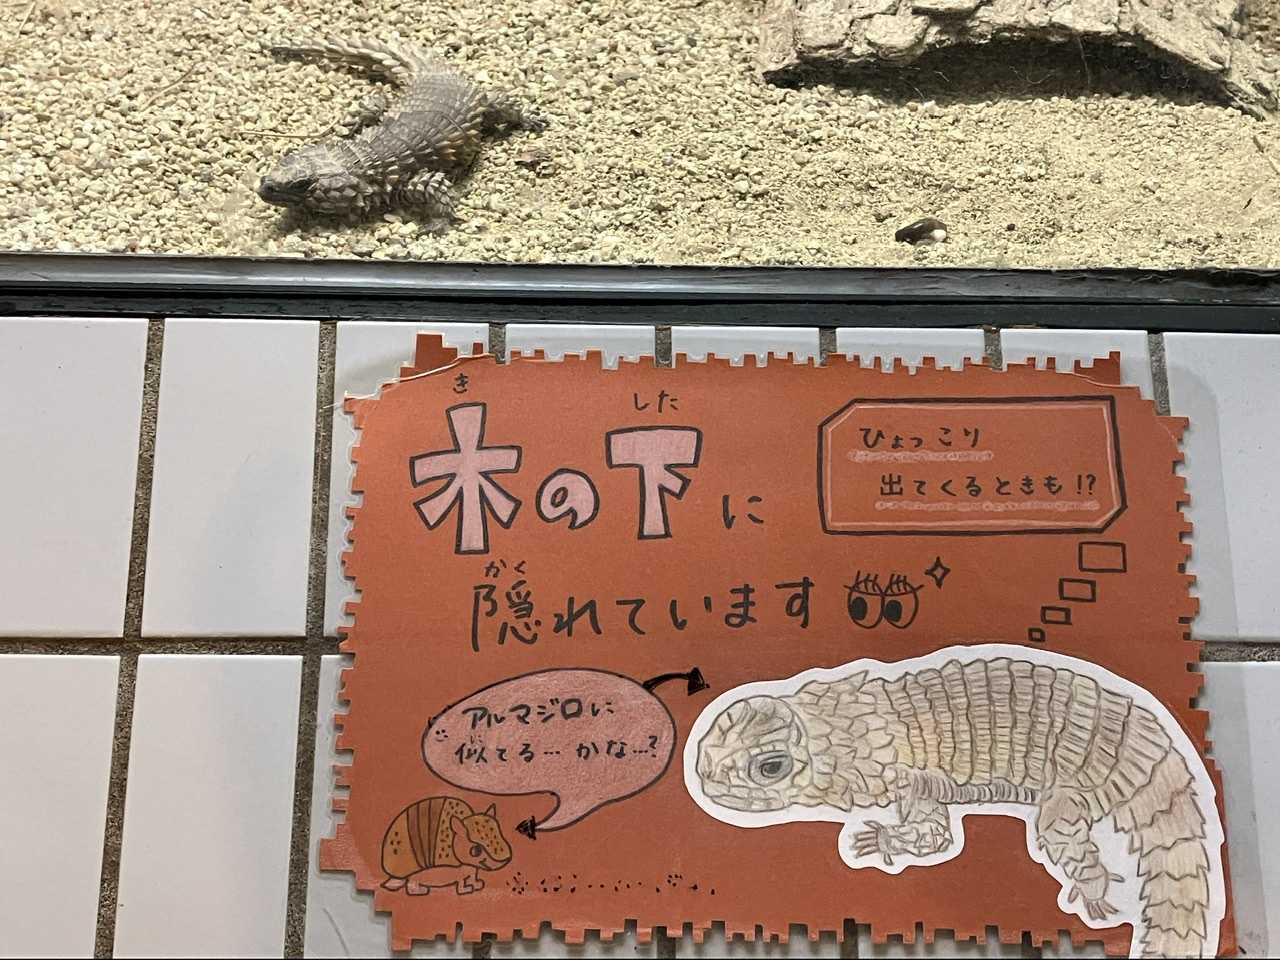 き した
木の下に
かく
隠れています
ひょっこり
出てくるときも!?
アルマジロに
に
似てる…かな…?